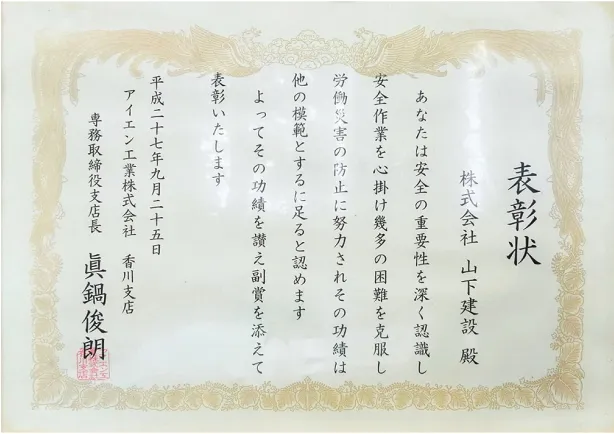 表彰状
株式会社 山下建設 殿
あなたは安全の重要性を深く認識し
安全作業を心掛け幾多の困難を克服し
労働災害の防止に努力されその功績は
他の模範とするに足ると認めます
よってその功績を讃え副賞を添えて
表彰いたします
平成二十七年九月二十五日
アイエン工業株式会社 香川支店
専務取締役支店長 眞鍋俊朗